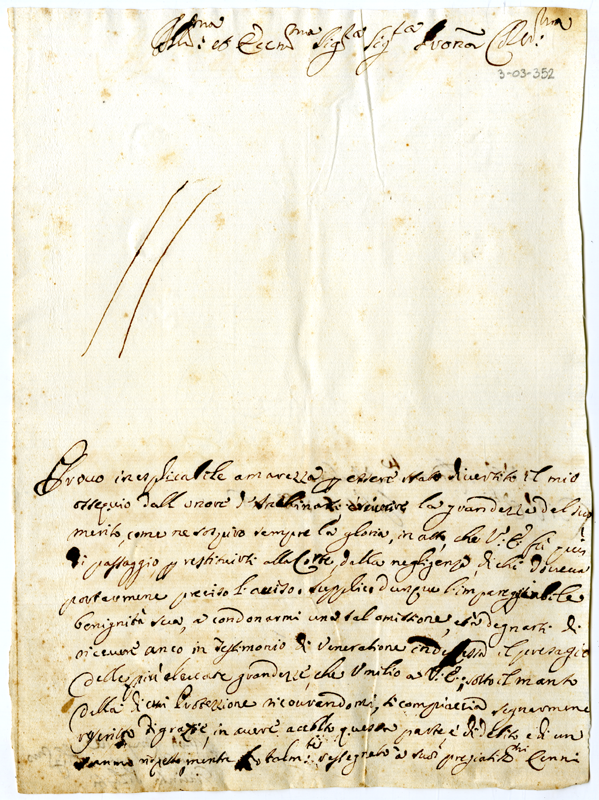 Ill.ma et Ecc.ma Sig.ra Sig.ra Padrona Coll.ma
3-03-352
Provo inesplicabile amarezza p essere stato divertito il mio
ossequio dall'onore d' inchinarsi la grandezza del suo
merito, come ne sospiro sempre la gloria, in atto, che V.E. fù quìui
di passaggio p restituirsi alla Corte, dalla negligenza di chi doueua
portarmene preciso l'auuiso. Supplico dunque l'impareggiabile
benignità sua, a condonarmi una tal omissione, e degnarsi di
riceuere anco in testimonio di Veneratione il presagio
delle più eleuate grandezze, che Vmilio a V.E., sotto il manto
della di cui Protezzione ricourandomi, si compiaccia segnarmene
di gratie, in auere accolto questa parte è di debito e di un
animo rispettosamente totalm.te rassegnato a suoi pregiatiss.mi Cenni